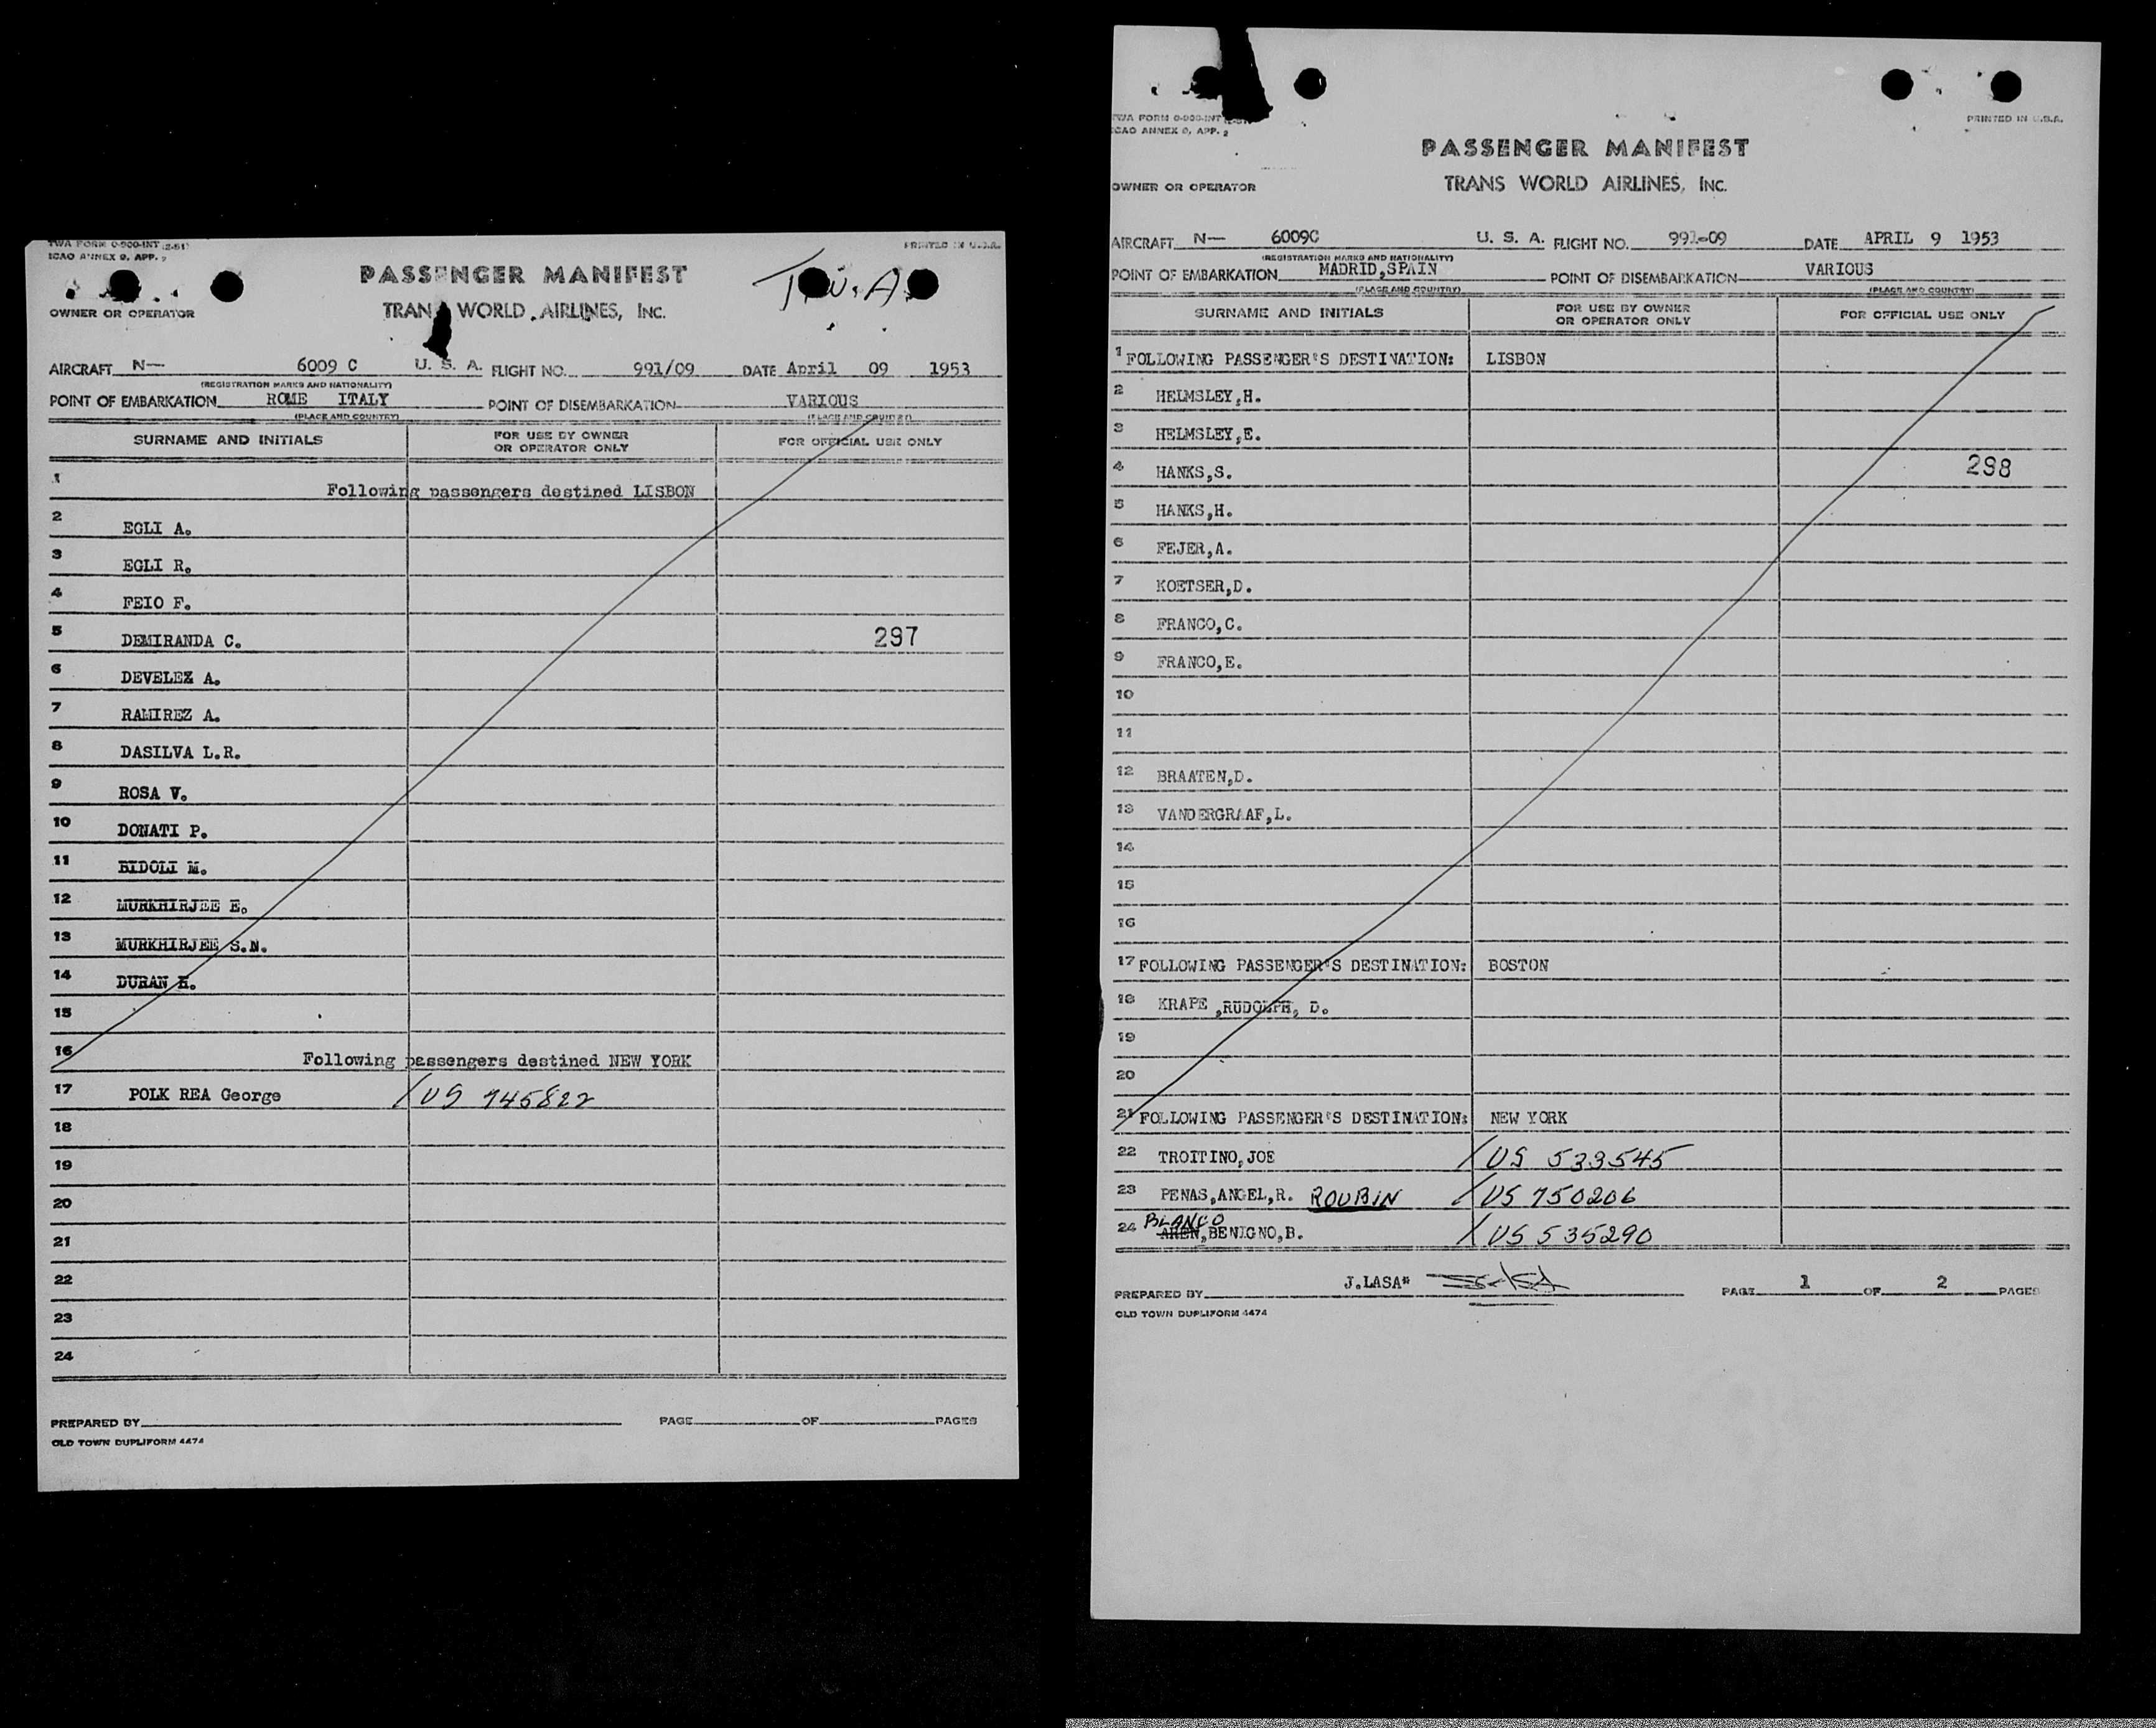 TWA FORM 0-900-INT (2-51)
ICAO ANNEX 9, APP. 2
PRINTED IN U.S.A.
PASSENGER MANIFEST
T.W.A.
OWNER OR OPERATOR
TRANS WORLD AIRLINES, INC.
AIRCRAFT N— 6009 C U. S. A. FLIGHT NO. 991/09 DATE April 09 1953
(REGISTRATION MARKS AND NATIONALITY)
POINT OF EMBARKATION ROME ITALY POINT OF DISEMBARKATION VARIOUS
(PLACE AND COUNTRY) (PLACE AND COUNTRY)
SURNAME AND INITIALS FOR USE BY OWNER OR OPERATOR ONLY FOR OFFICIAL USE ONLY
1 Following passengers destined LISBON
2 EGLI A.
3 EGLI R.
4 FEIO F.
5 DEMIRANDA C. 297
6 DEVELEZ A.
7 RAMIREZ A.
8 DASILVA L.R.
9 ROSA V.
10 DONATI P.
11 BIDOLI M.
12 MURKHIRJEE E.
13 MURKHIRJEE S.N.
14 DURAN
15
16 Following passengers destined NEW YORK
17 POLK REA George /US 745822
18
19
20
21
22
23
24
PREPARED BY PAGE OF PAGES
OLD TOWN DUPLIFORM 4474
TWA FORM 0-900-INT
ICAO ANNEX 9, APP. 2
PRINTED IN U.S.A.
PASSENGER MANIFEST
OWNER OR OPERATOR
TRANS WORLD AIRLINES, INC.
AIRCRAFT N— 6009C U. S. A. FLIGHT NO. 991-09 DATE APRIL 9 1953
(REGISTRATION MARKS AND NATIONALITY)
POINT OF EMBARKATION MADRID,SPAIN POINT OF DISEMBARKATION VARIOUS
(PLACE AND COUNTRY) (PLACE AND COUNTRY)
SURNAME AND INITIALS FOR USE BY OWNER OR OPERATOR ONLY FOR OFFICIAL USE ONLY
1 FOLLOWING PASSENGER'S DESTINATION: LISBON
2 HELMSLEY,H.
3 HELMSLEY,E.
4 HANKS,S. 298
5 HANKS,H.
6 FEJER,A.
7 KOETSER,D.
8 FRANCO,C.
9 FRANCO,E.
10
11
12 BRAATEN,D.
13 VANDERGRAAF,L.
14
15
16
17 FOLLOWING PASSENGER'S DESTINATION: BOSTON
18 KRAPE ,RUDOLPH, D.
19
20
21 FOLLOWING PASSENGER'S DESTINATION: NEW YORK
22 TROITINO,JOE /US 533545
23 PENAS,ANGEL,R. ROUBIN /US 750206
BLANCO
24 AREN,BENIGNO,B. /US 535290
PREPARED BY J.LASA* PAGE 1 OF 2 PAGES
OLD TOWN DUPLIFORM 4474